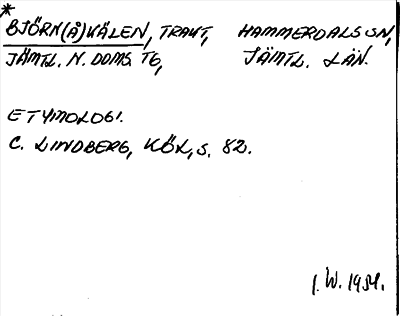 *
BJÖRN(Å)KÄLEN, TRAKT, HAMMERDALS SN,
JÄMTL. N. DOMS. TG, JÄMTL. LÄN.
ETYMOLOGI.
C. LINDBERG, KÖL, S. 82.
I. W. 1954.